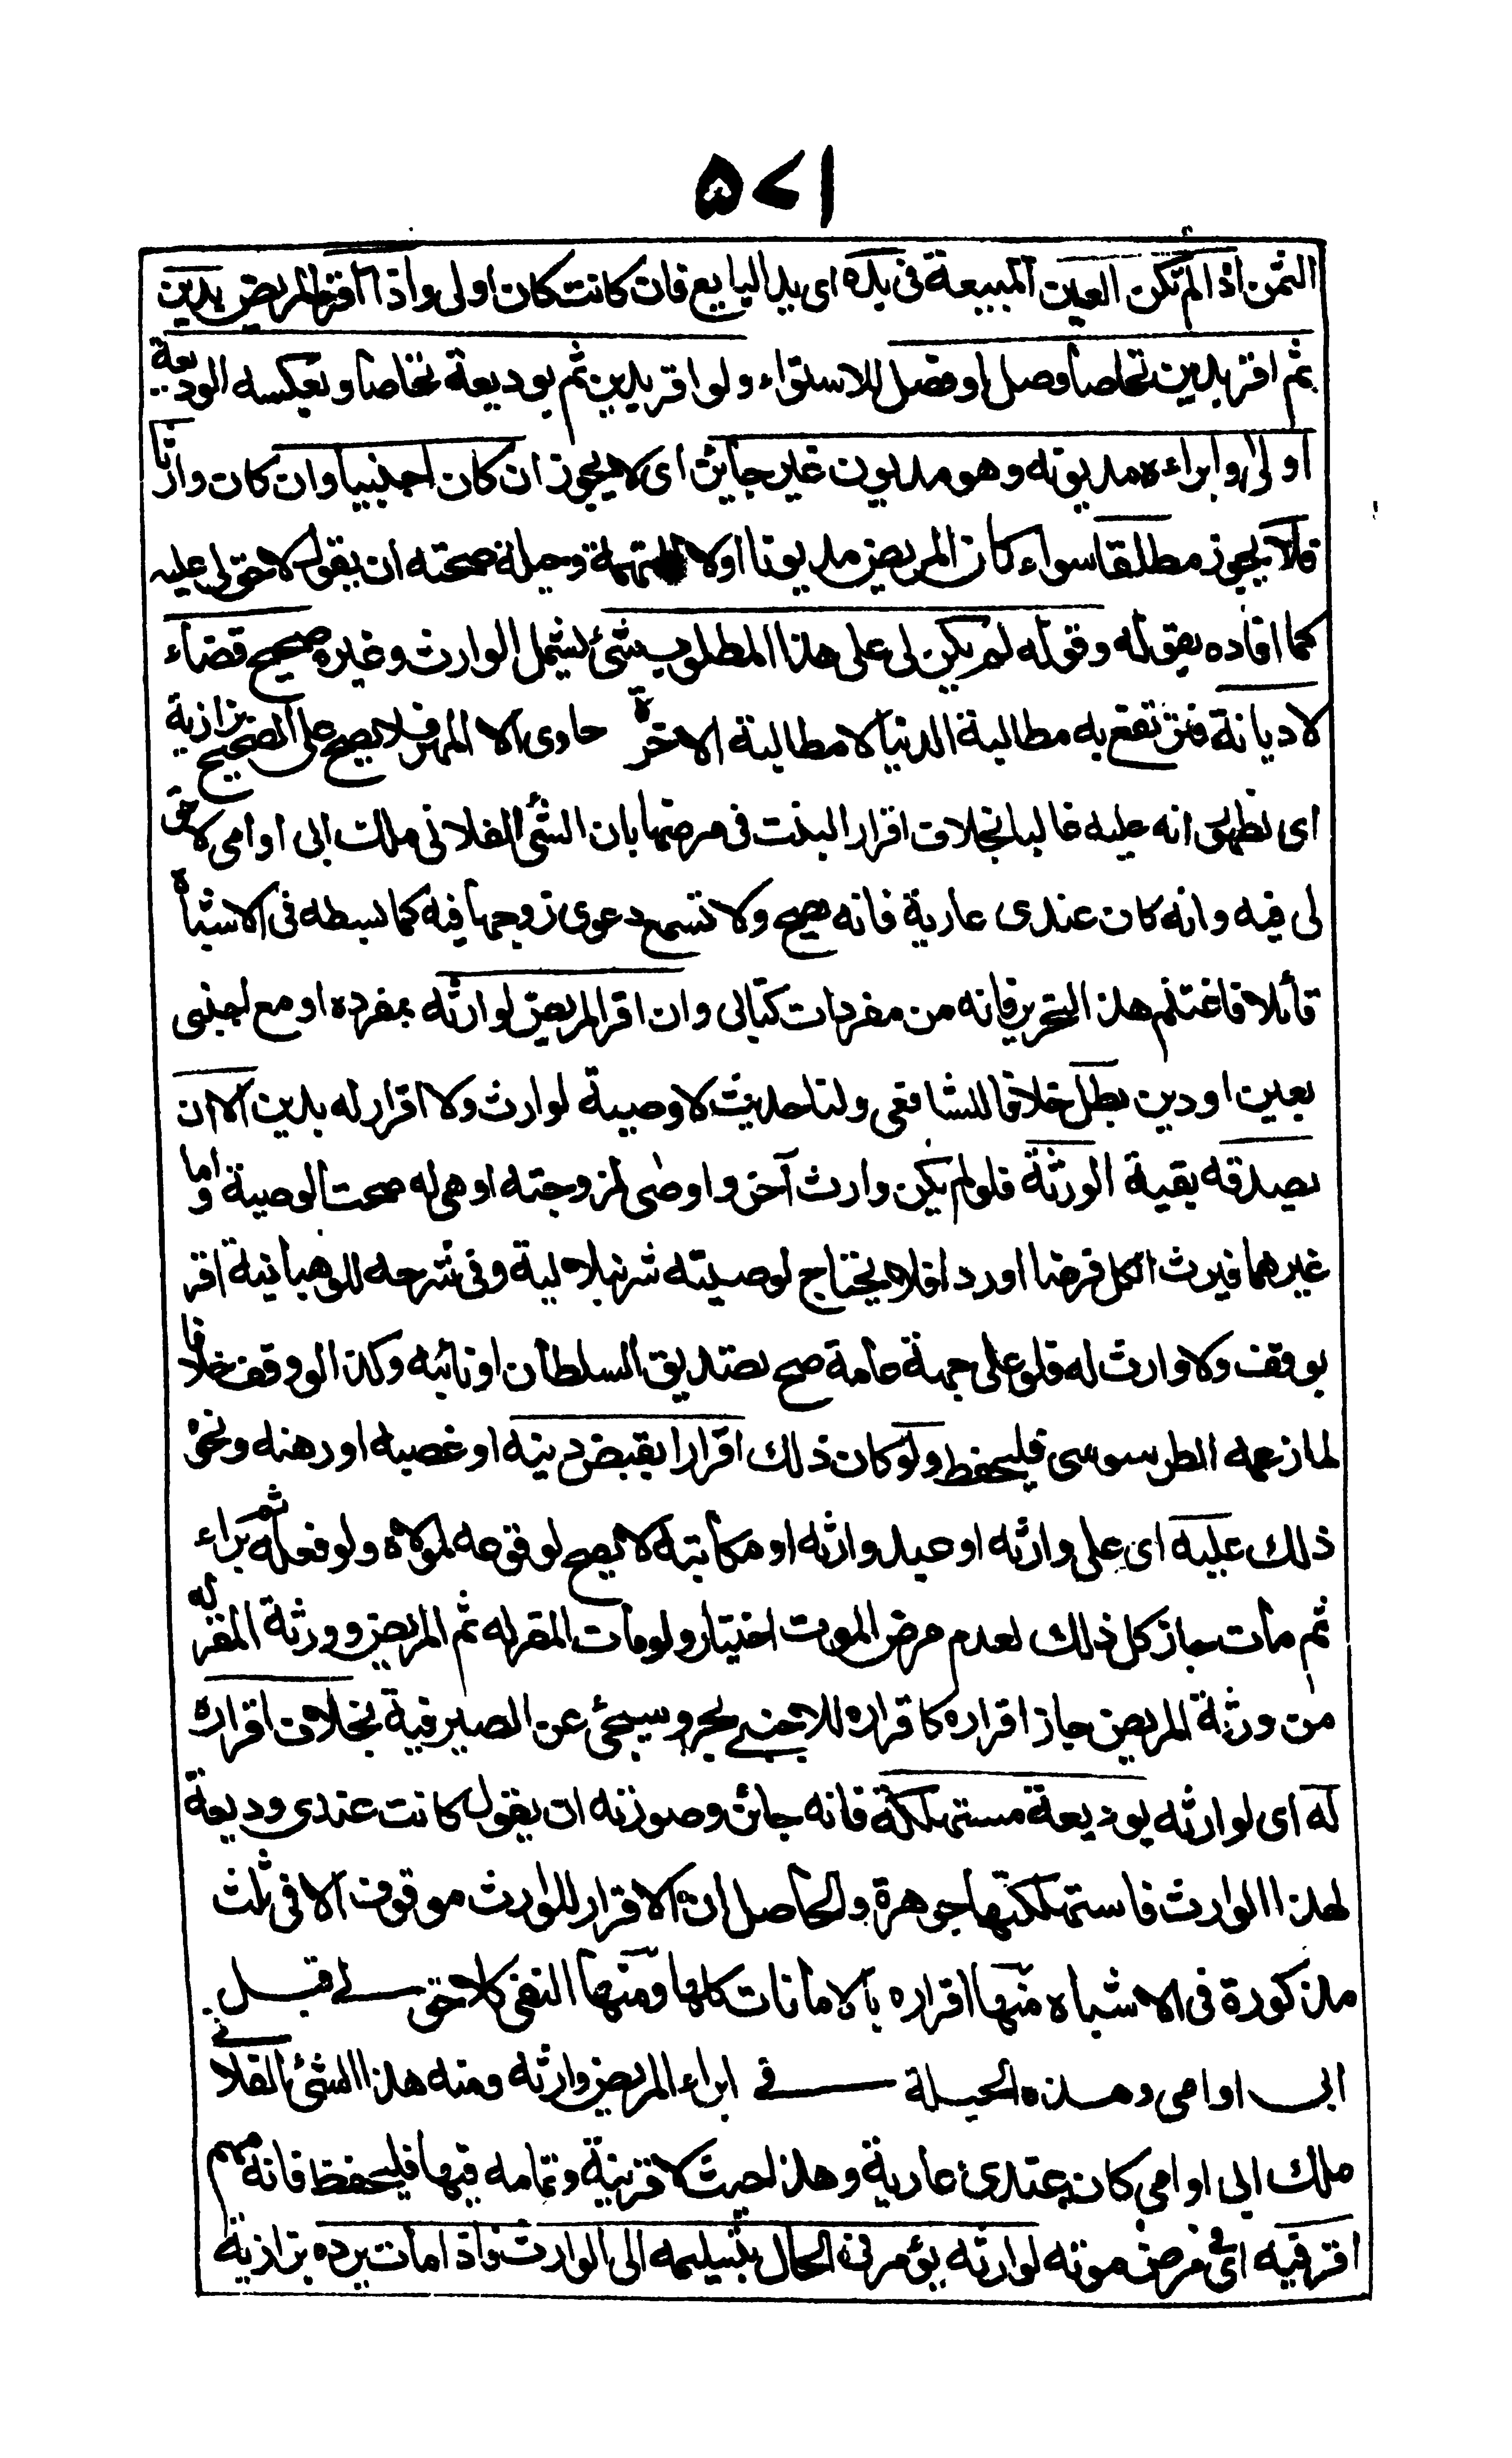 ۵۷۱
الثمن اذا لم تكن العين المبيعة فى يده اى يد البايع فان كانت كان اولى واذا اقر المريض بدين
ثم اقر بدين تحاصا وصل او فصل للاستواء ولو اقر بدين ثم بوديعة تحاصا وبعكسه الوديعة
اولى وابراءه مديونه وهو مديون غير جائز اى لا يجوز ان كان اجنبيا وان كان وارثا
فلا يجوز مطلقا سواء كان المريض مديونا اولا للتهمة وحيلة صحته ان يقول لا حق لى عليه
كما افاده بقوله وقوله لم يكن لى على هذا المطلوب شئ يشمل الوارث وغيره صحيح قضاء
لا ديانة فترتفع به مطالبة الدنيا لا مطالبة الاخرة حاوى الا المهر فلا يصح على الصحيح بزازية
اى لظهور انه عليه غالبا بخلاف اقرار البنت فى مرضها بان الشئ الفلانى ملك ابى او امى لا حق
لى فيه وانه كان عندى عارية فانه يصح ولا تسمع دعوى زوجها فيه كما بسطه فى الاشباه
قائلا فاغتنم هذا التحرير فانه من مفردات كتابى وان اقر المريض لوارثه بمفرده او مع اجنبى
بعين او دين بطل خلافا للشافعى ولنا حديث لا وصية لوارث ولا اقرار له بدين الا ان
يصدقه بقية الورثة فلو لم يكن وارث آخر واوصى لزوجته او هى له صحت الوصية واما
غيرهما فيرث الكل فرضا او ردا فلا يحتاج لوصيته شرنبلالية وفى شرحه للوهبانية اقر
بوقف ولا وارث له فلو على جهة عامة صح بتصديق السلطان او نائبه وكذا الو وقف خلافا
لما زعمه الطرسوسى فليحفظ ولو كان ذلك اقرارا بقبض دينه او غصبه او رهنه ونحو
ذلك عليه اى على وارثه او عبد وارثه او مكاتبه لا يصح لوقوعه لمولاه ولو فعله ثم براء
ثم مات جاز كل ذلك لعدم مرض الموت اختيار ولو مات المقر له ثم المريض وورثة المقر له
من ورثة المريض جاز اقراره كاقراره للاجنبى بحر وسيجئ عن الصيرفية بخلاف اقراره
له اى لوارثه بوديعة مستهلكة فانه جائز وصورته ان يقول كانت عندى وديعة
لهذا الوارث فاستهلكتها جوهرة والحاصل ان الاقرار للوارث موقوف الا فى ثلث
مذكورة فى الاشباه منها اقراره بالامانات كلها ومنها النفى كلا حق لى قبل
ابى او امى وهذه الحيلة فى ابراء المريض وارثه ومنه هذا الشئ الفلانى
ملك ابى او امى كان عندى عارية وهذا حيث لا قرينة وتمامه فيها فليحفظ فانه مهم
اقر فيه اى فى مرض موته لوارثه يؤمر فى الحال بتسليمه الى الوارث فاذا مات يرده بزازية